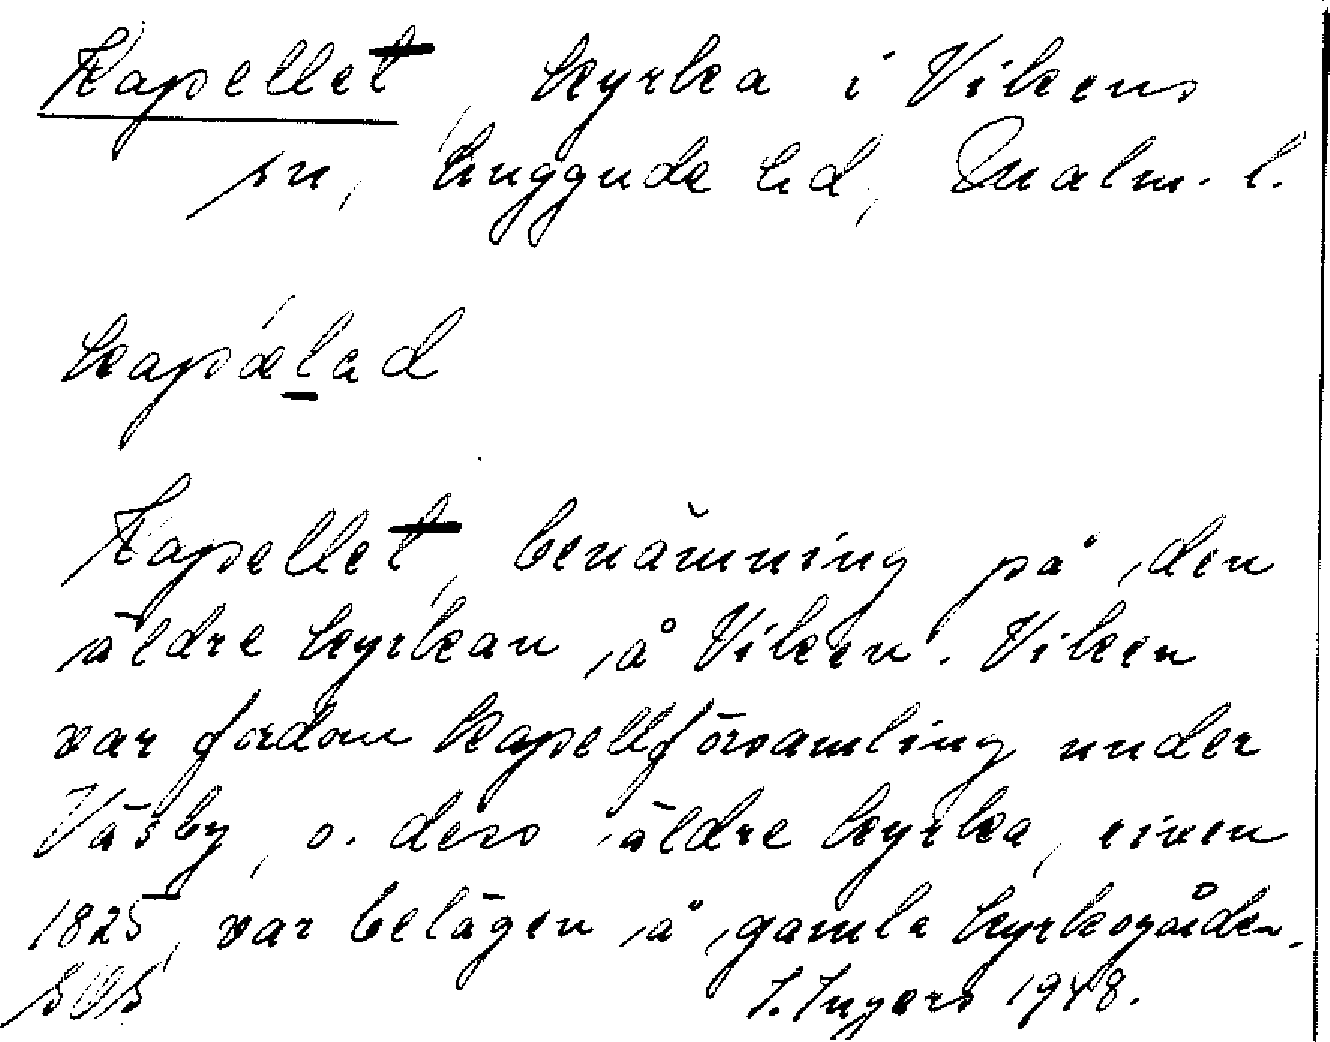 Kapellet, kyrka i Vikens
sn, Luggude hd, Malm. l.
kapælad
Kapellet, benämning på den
äldre kyrkan å Viken. Viken
var fordom kapellförsamling under
Väsby, o. dess äldre kyrka, riven
1825, var belägen å gamla kyrkogården.
I. Ingers 1948.